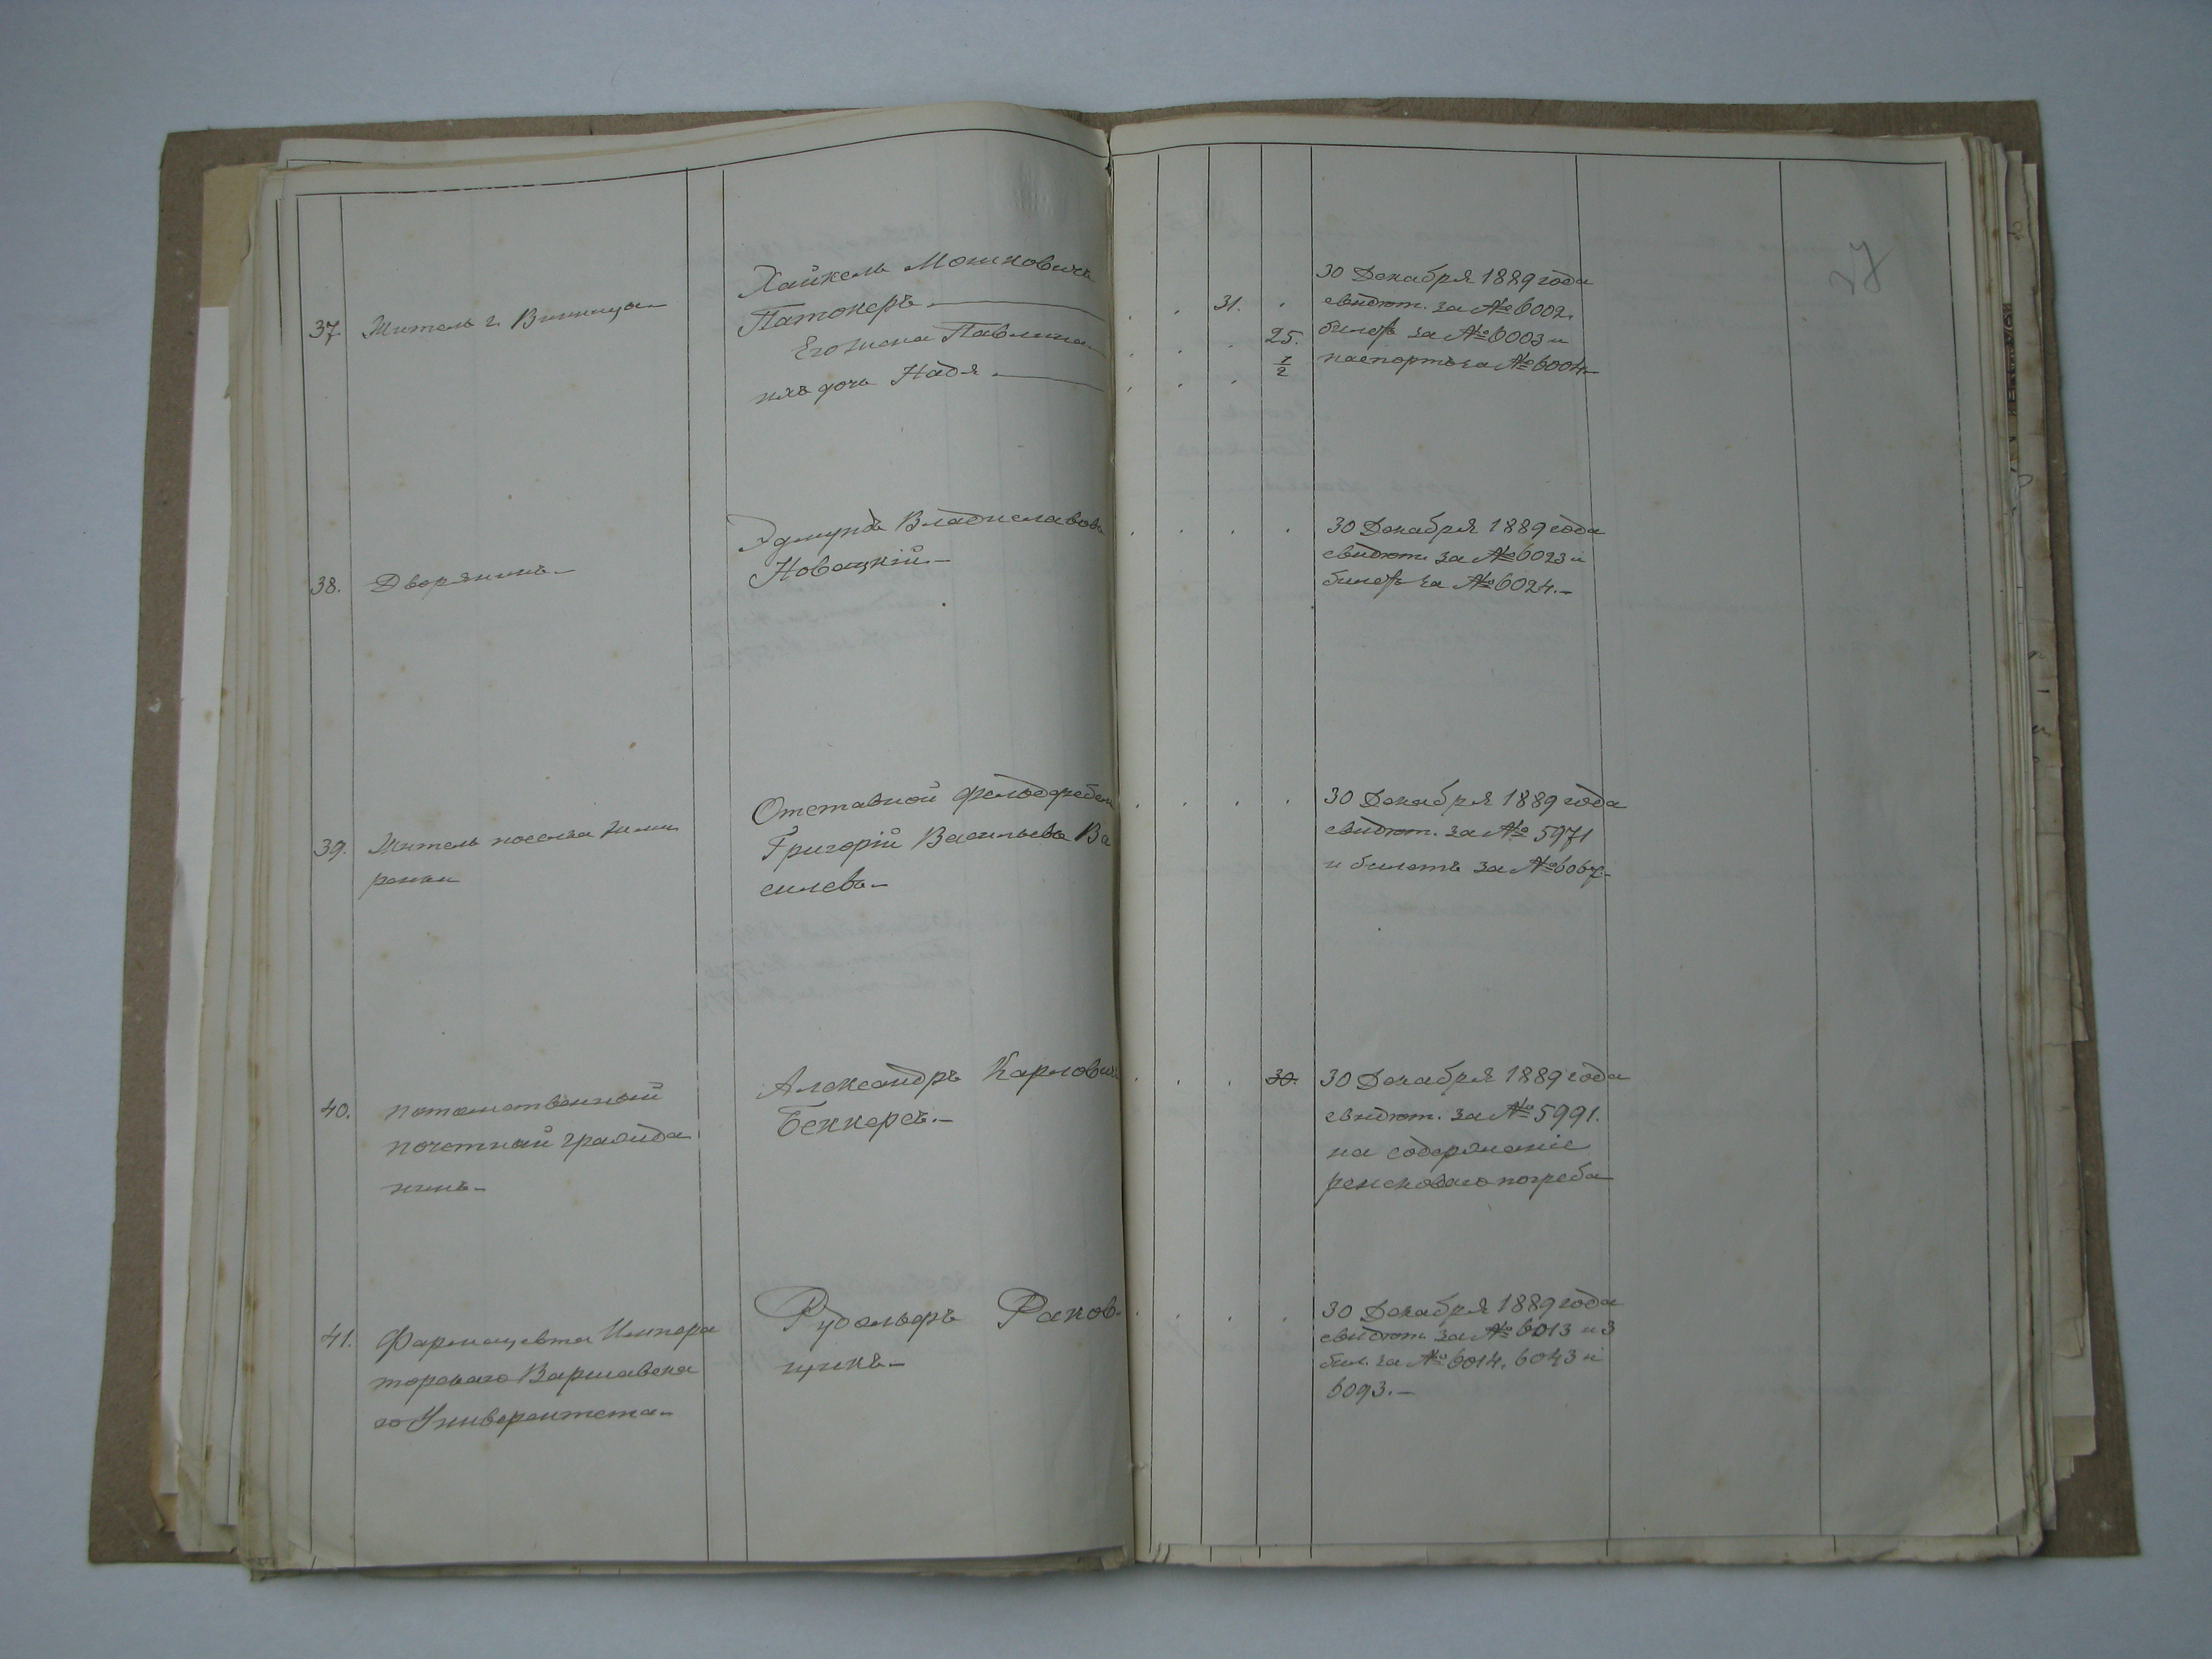 27
37. Житель г. Винницы
Хайкель Мошковичъ
Патокеръ. 31.
Его жена Павлина 25.
ихъ дочь Надя. 1/2
30 Декабря 1889 года
свидѣт. за № 6002.
билетъ за № 6003 и
паспортъ за № 6004.
38. Дворянинъ.
Эдмундъ Владиславовъ
Новацкій.
30 Декабря 1889 года
свидѣт. за № 6023 и
билетъ за № 6024.
39. Житель поселка
Отставной фельдфебель
Григорій Васильевъ Ва
силевъ
30 Декабря 1889 года
свидѣт. за № 5971
и билетъ за № 6067
40. потомственный
почетный гражда
нинъ
Александръ Карловичъ
Беккерсъ. 30.
30 Декабря 1889 года
свидѣт. за № 5991.
на содержаніе
ренсковаго погреба
41. Фармацевта Импера
торскаго Варшавска
го Университета
Рудольфъ Раков-
щикъ
30 Декабря 1889 года
свидѣт. за № 6013 и 3
бил. за № 6014, 6043 и
6093.